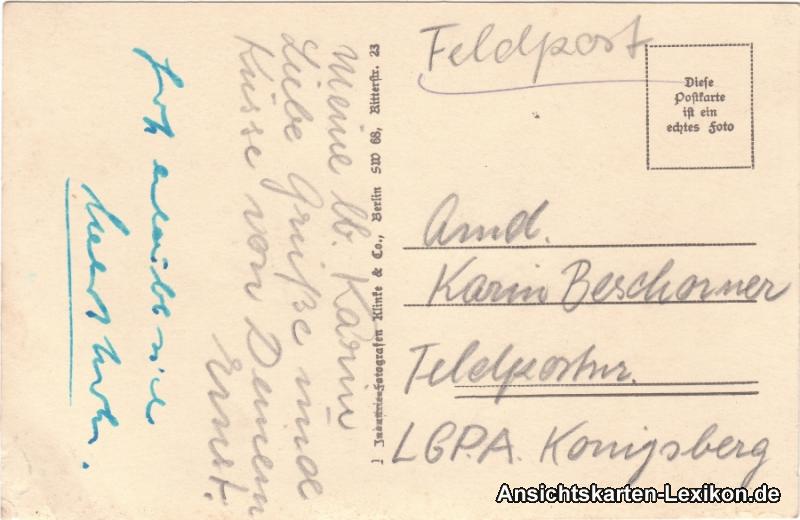 Feldpost
Diese
Postkarte
ist ein
echtes Foto
Amd.
Karin Beschorner
Feldpostnr.
L.G.P.A. Königsberg
Industrie-Fotografen Klinke & Co., Berlin SW 68, Ritterstr. 23
Meine lb. Karin
Liebe Grüße und
Küsse von Deinem
Ernst!
Ansichtskarten-Lexikon.de